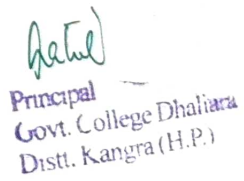 Principal
Govt. College Dhaliara
Distt. Kangra (H.P.)